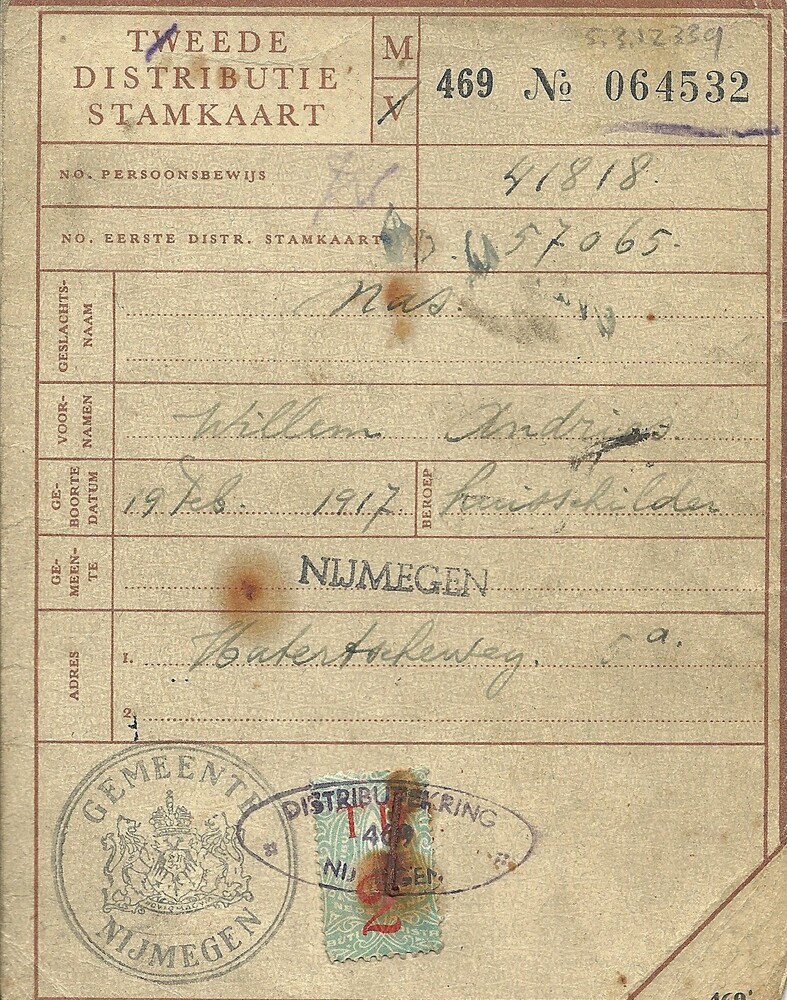 5.3.12339
TWEEDE
DISTRIBUTIE
STAMKAART
M
V
469 No 064532
NO. PERSOONSBEWIJS
41818.
NO. EERSTE DISTR. STAMKAART
57065.
GESLACHTS-
NAAM
Nas.
VOOR-
NAMEN
Willem Andries.
GE-
BOORTE
DATUM
19 Feb. 1917
BEROEP
huisschilder
GE-
MEEN-
TE
NIJMEGEN
ADRES
1.
Hatertscheweg. 5a.
2.
GEMEENTE
NIJMEGEN
DISTRIBUTIEKRING
469
NIJMEGEN
2
469